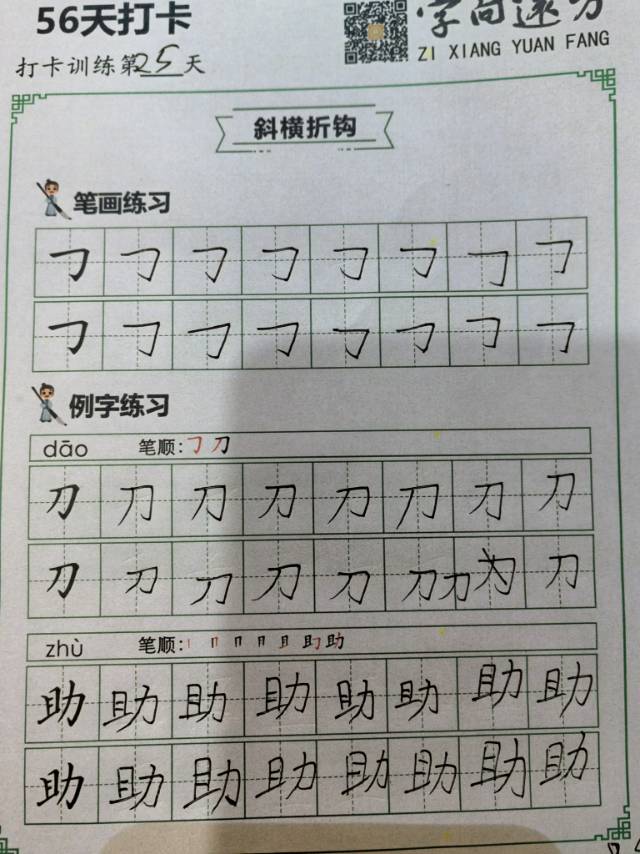 56天打卡
字间远方
ZI XIANG YUAN FANG
打卡训练第25天
斜横折钩
笔画练习
㇆ ㇆ ㇆ ㇆ ㇆ ㇆ ㇆ ㇆
㇆ ㇆ ㇆ ㇆ ㇆ ㇆ ㇆ ㇆
例字练习
dāo 笔顺:㇆刀
刀 刀 刀 刀 刀 刀 刀 刀
刀 刀 刀 刀 刀 刀 力 为 刀
zhù 笔顺:
助 助 助 助 助 助 助 助
助 助 助 助 助 助 助 助